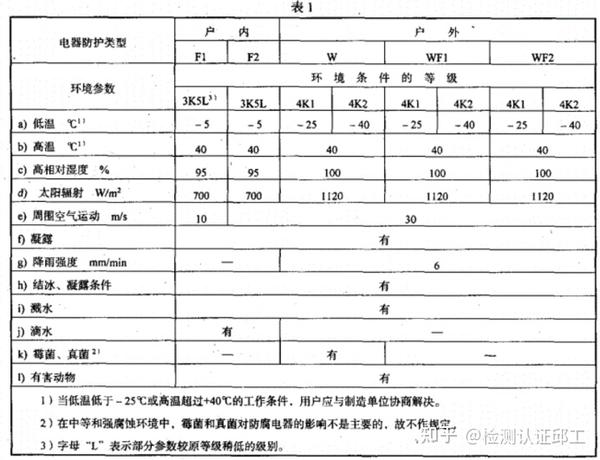 表1
电器防护类型 户 内 户 外
F1 F2 W WF1 WF2
环境参数 环 境 条 件 的 等 级
3K5L3) 3K5L 4K1 4K2 4K1 4K2 4K1 4K2
a) 低温 ℃1) －5 －5 －25 －40 －25 －40 －25 －40
b) 高温 ℃1) 40 40 40 40 40
c) 高相对湿度 % 95 95 100 100 100
d) 太阳辐射 W/m2 700 700 1120 1120 1120
e) 周围空气运动 m/s 10 30
f) 凝露 有
g) 降雨强度 mm/min — 6
h) 结冰、凝露条件 有
i) 溅水 有
j) 滴水 有 —
k) 霉菌、真菌2) — 有 —
l) 有害动物 有
1）当低温低于－25℃或高温超过+40℃的工作条件，用户应与制造单位协商解决。
2）在中等和强腐蚀环境中，霉菌和真菌对防腐电器的影响不是主要的，故不作规定。
3）字母“L”表示部分参数较原等级稍低的级别。
知乎 @检测认证邱工